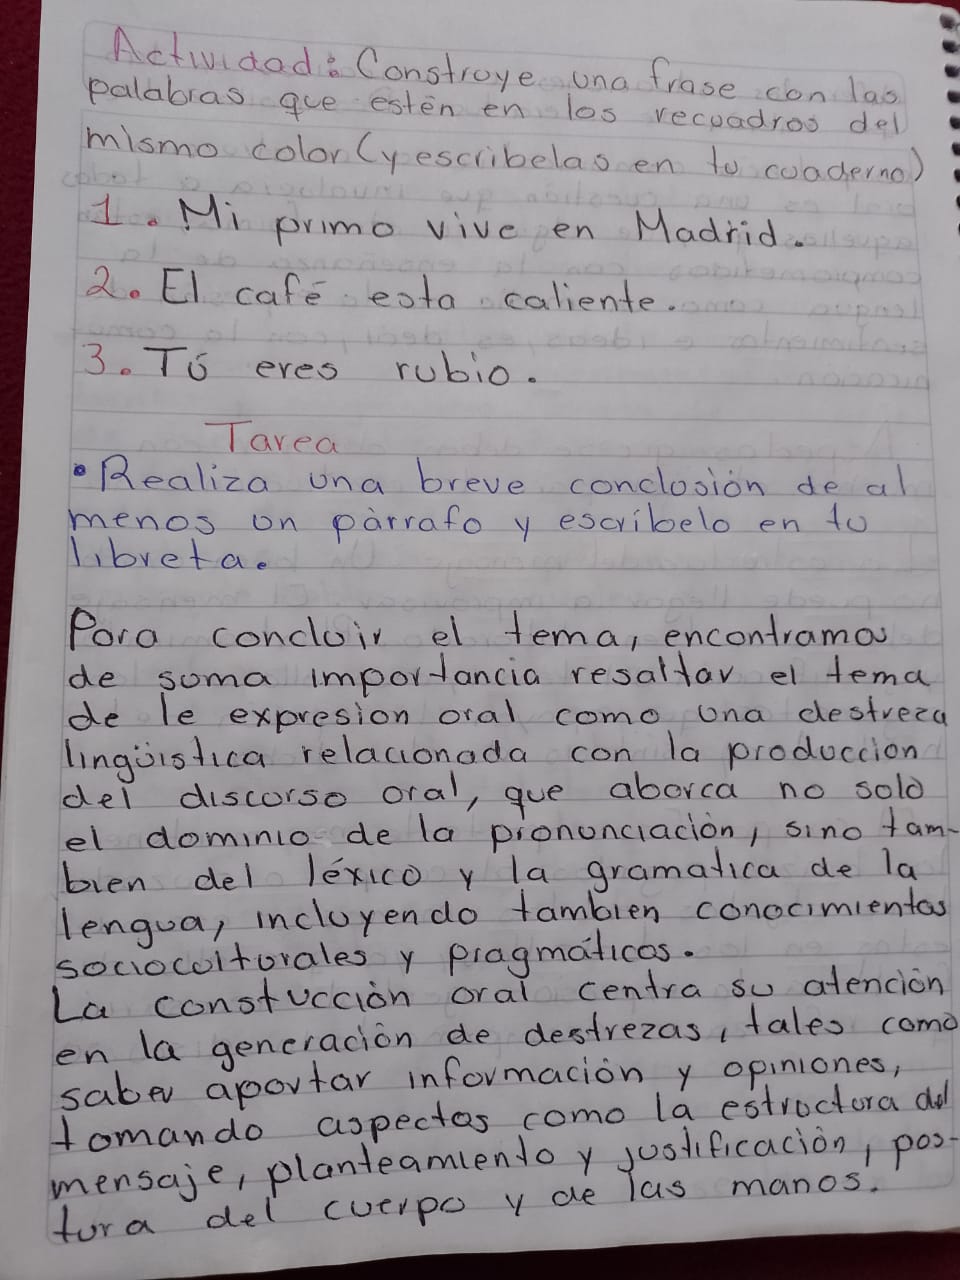 Actividad: Construye una frase con las
palabras que estén en los recuadros del
mismo color (y escribelas en tu cuaderno)
1. Mi primo vive en Madrid.
2. El café esta caliente.
3. Tú eres rubio.
Tarea
• Realiza una breve conclusión de al
menos un párrafo y escríbelo en tu
libreta.
Para concluir el tema, encontramos
de suma importancia resaltar el tema
de le expresion oral como una destreza
lingüistica relacionada con la produccion
del discurso oral, que aborca no solo
el dominio de la pronunciación, sino tam-
bien del léxico y la gramatica de la
lengua, incluyendo tambien conocimientos
socioculturales y pragmáticos.
La constucción oral centra su atención
en la generación de destrezas, tales como
saber aportar información y opiniones,
tomando aspectos como la estructura del
mensaje, planteamiento y justificación, pos-
tura del cuerpo y de las manos.